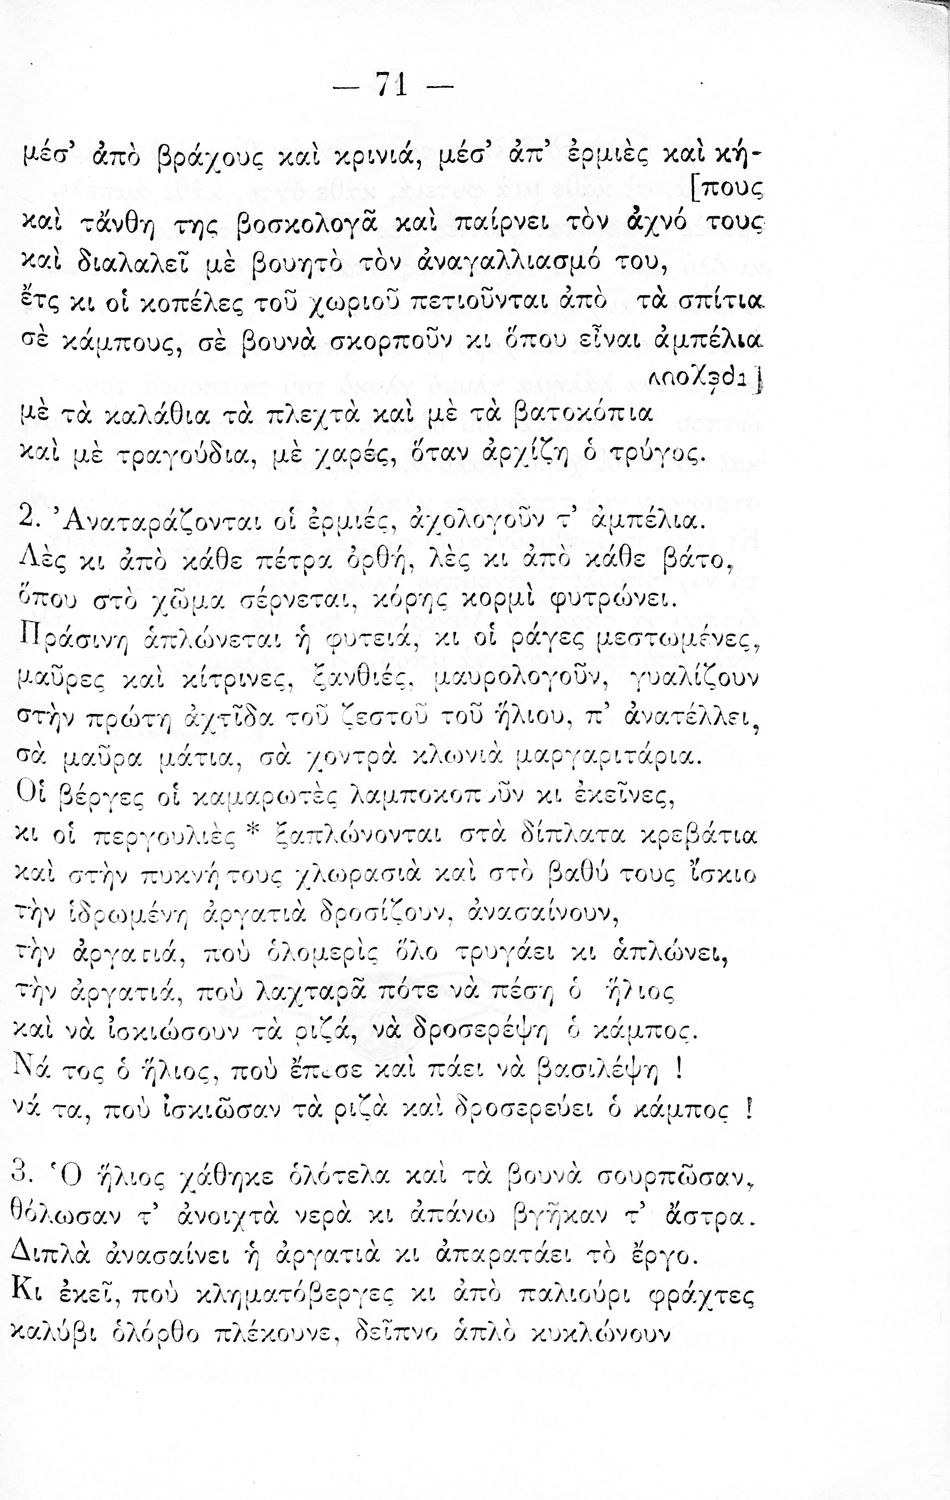 — 71 —
μέσ’ ἀπὸ βράχους καὶ κρινιά, μέσ’ ἀπ’ ἐρμιὲς καὶ κή-
[πους
καὶ τἄνθη της βοσκολογᾶ καὶ παίρνει τὸν ἀχνό τους
καὶ διαλαλεῖ μὲ βουητὸ τὸν ἀναγαλλιασμό του,
ἔτς κι οἱ κοπέλες τοῦ χωριοῦ πετιοῦνται ἀπὸ τὰ σπίτια
σὲ κάμπους, σὲ βουνὰ σκορποῦν κι ὅπου εἶναι ἀμπέλια
μὲ τὰ καλάθια τὰ πλεχτὰ καὶ μὲ τὰ βατοκόπια
καὶ μὲ τραγούδια, μὲ χαρές, ὅταν ἀρχίζη ὁ τρύγος.
2. Ἀναταράζονται οἱ ἐρμιές, ἀχολογοῦν τ’ ἀμπέλια.
Λὲς κι ἀπὸ κάθε πέτρα ὀρθή, λὲς κι ἀπὸ κάθε βάτο,
ὅπου στὸ χῶμα σέρνεται, κόρης κορμὶ φυτρώνει.
Πράσινη ἁπλώνεται ἡ φυτειά, κι οἱ ράγες μεστωμένες,
μαῦρες καὶ κίτρινες, ξανθιές, μαυρολογοῦν, γυαλίζουν
στὴν πρώτη ἀχτῖδα τοῦ ζεστοῦ τοῦ ἥλιου, π’ ἀνατέλλει,
σὰ μαῦρα μάτια, σὰ χοντρὰ κλωνιὰ μαργαριτάρια.
Οἱ βέργες οἱ καμαρωτὲς λαμποκοποῦν κι ἐκεῖνες,
κι οἱ περγουλιὲς * ξαπλώνονται στὰ δίπλατα κρεβάτια
καὶ στὴν πυκνή τους χλωρασιὰ καὶ στὸ βαθύ τους ἴσκιο
τὴν ἱδρωμένη ἀργατιὰ δροσίζουν, ἀνασαίνουν,
τὴν ἀργατιά, ποὺ ὁλομερὶς ὅλο τρυγάει κι ἁπλώνει,
τὴν ἀργατιά, ποὺ λαχταρᾶ πότε νὰ πέση ὁ ἥλιος
καὶ νὰ ἰσκιώσουν τὰ ριζά, νὰ δροσερέψη ὁ κάμπος.
Νά τος ὁ ἥλιος, ποὺ ἔπεσε καὶ πάει νὰ βασιλέψη !
νά τα, ποὺ ἰσκιῶσαν τὰ ριζὰ καὶ δροσερεύει ὁ κάμπος !
3. Ὁ ἥλιος χάθηκε ὁλότελα καὶ τὰ βουνὰ σουρπῶσαν,
θόλωσαν τ’ ἀνοιχτὰ νερὰ κι ἀπάνω βγῆκαν τ’ ἄστρα.
Διπλὰ ἀνασαίνει ἡ ἀργατιὰ κι ἀπαρατάει τὸ ἔργο.
Κι ἐκεῖ, ποὺ κληματόβεργες κι ἀπὸ παλιούρι φράχτες
καλύβι ὁλόρθο πλέκουνε, δεῖπνο ἁπλὸ κυκλώνουν